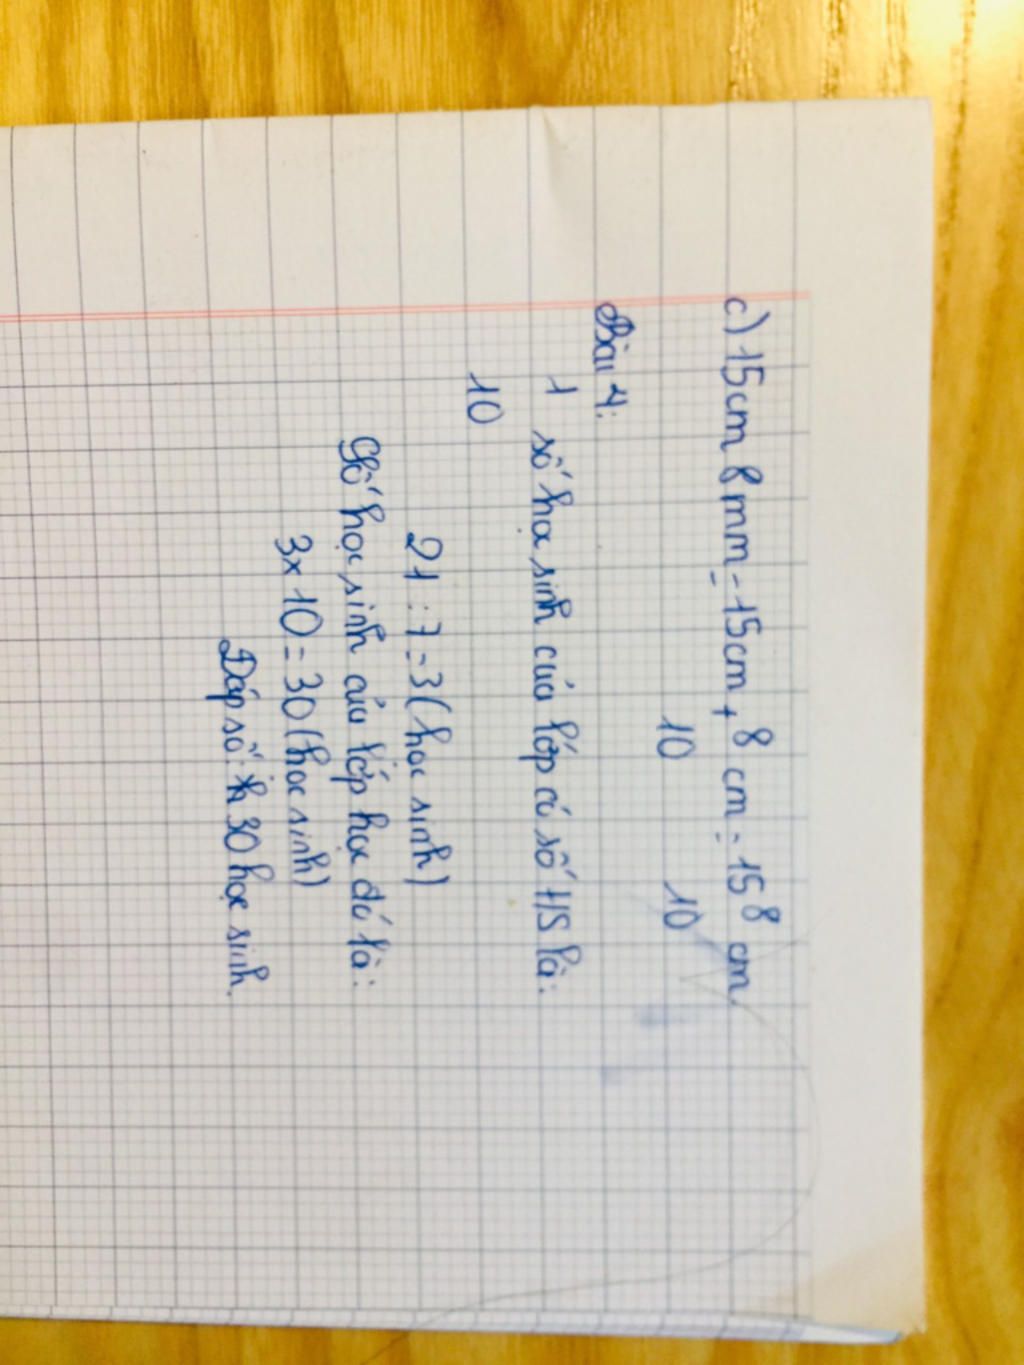 c) 15cm 8mm = 15cm + 8/10 cm = 15 8/10 cm.
Bài 4:
1/10 số học sinh của lớp có số HS là:
21 : 7 = 3 (học sinh)
Số học sinh của lớp học đó là:
3 x 10 = 30 (học sinh)
Đáp số: 30 học sinh.